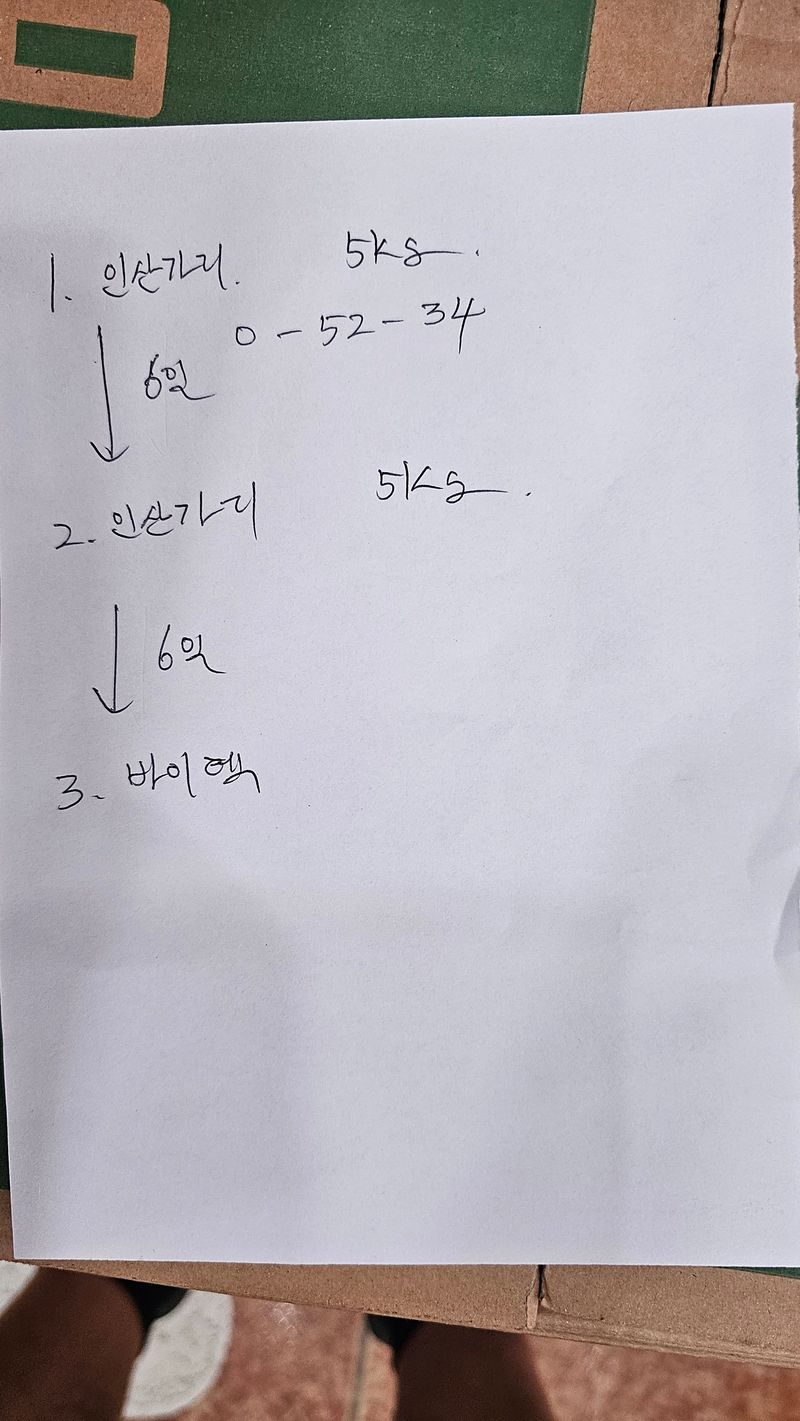 1. 인산가리. 5kg.
0-52-34
6일
2. 인산가리 5kg.
6일
3. 바이핵